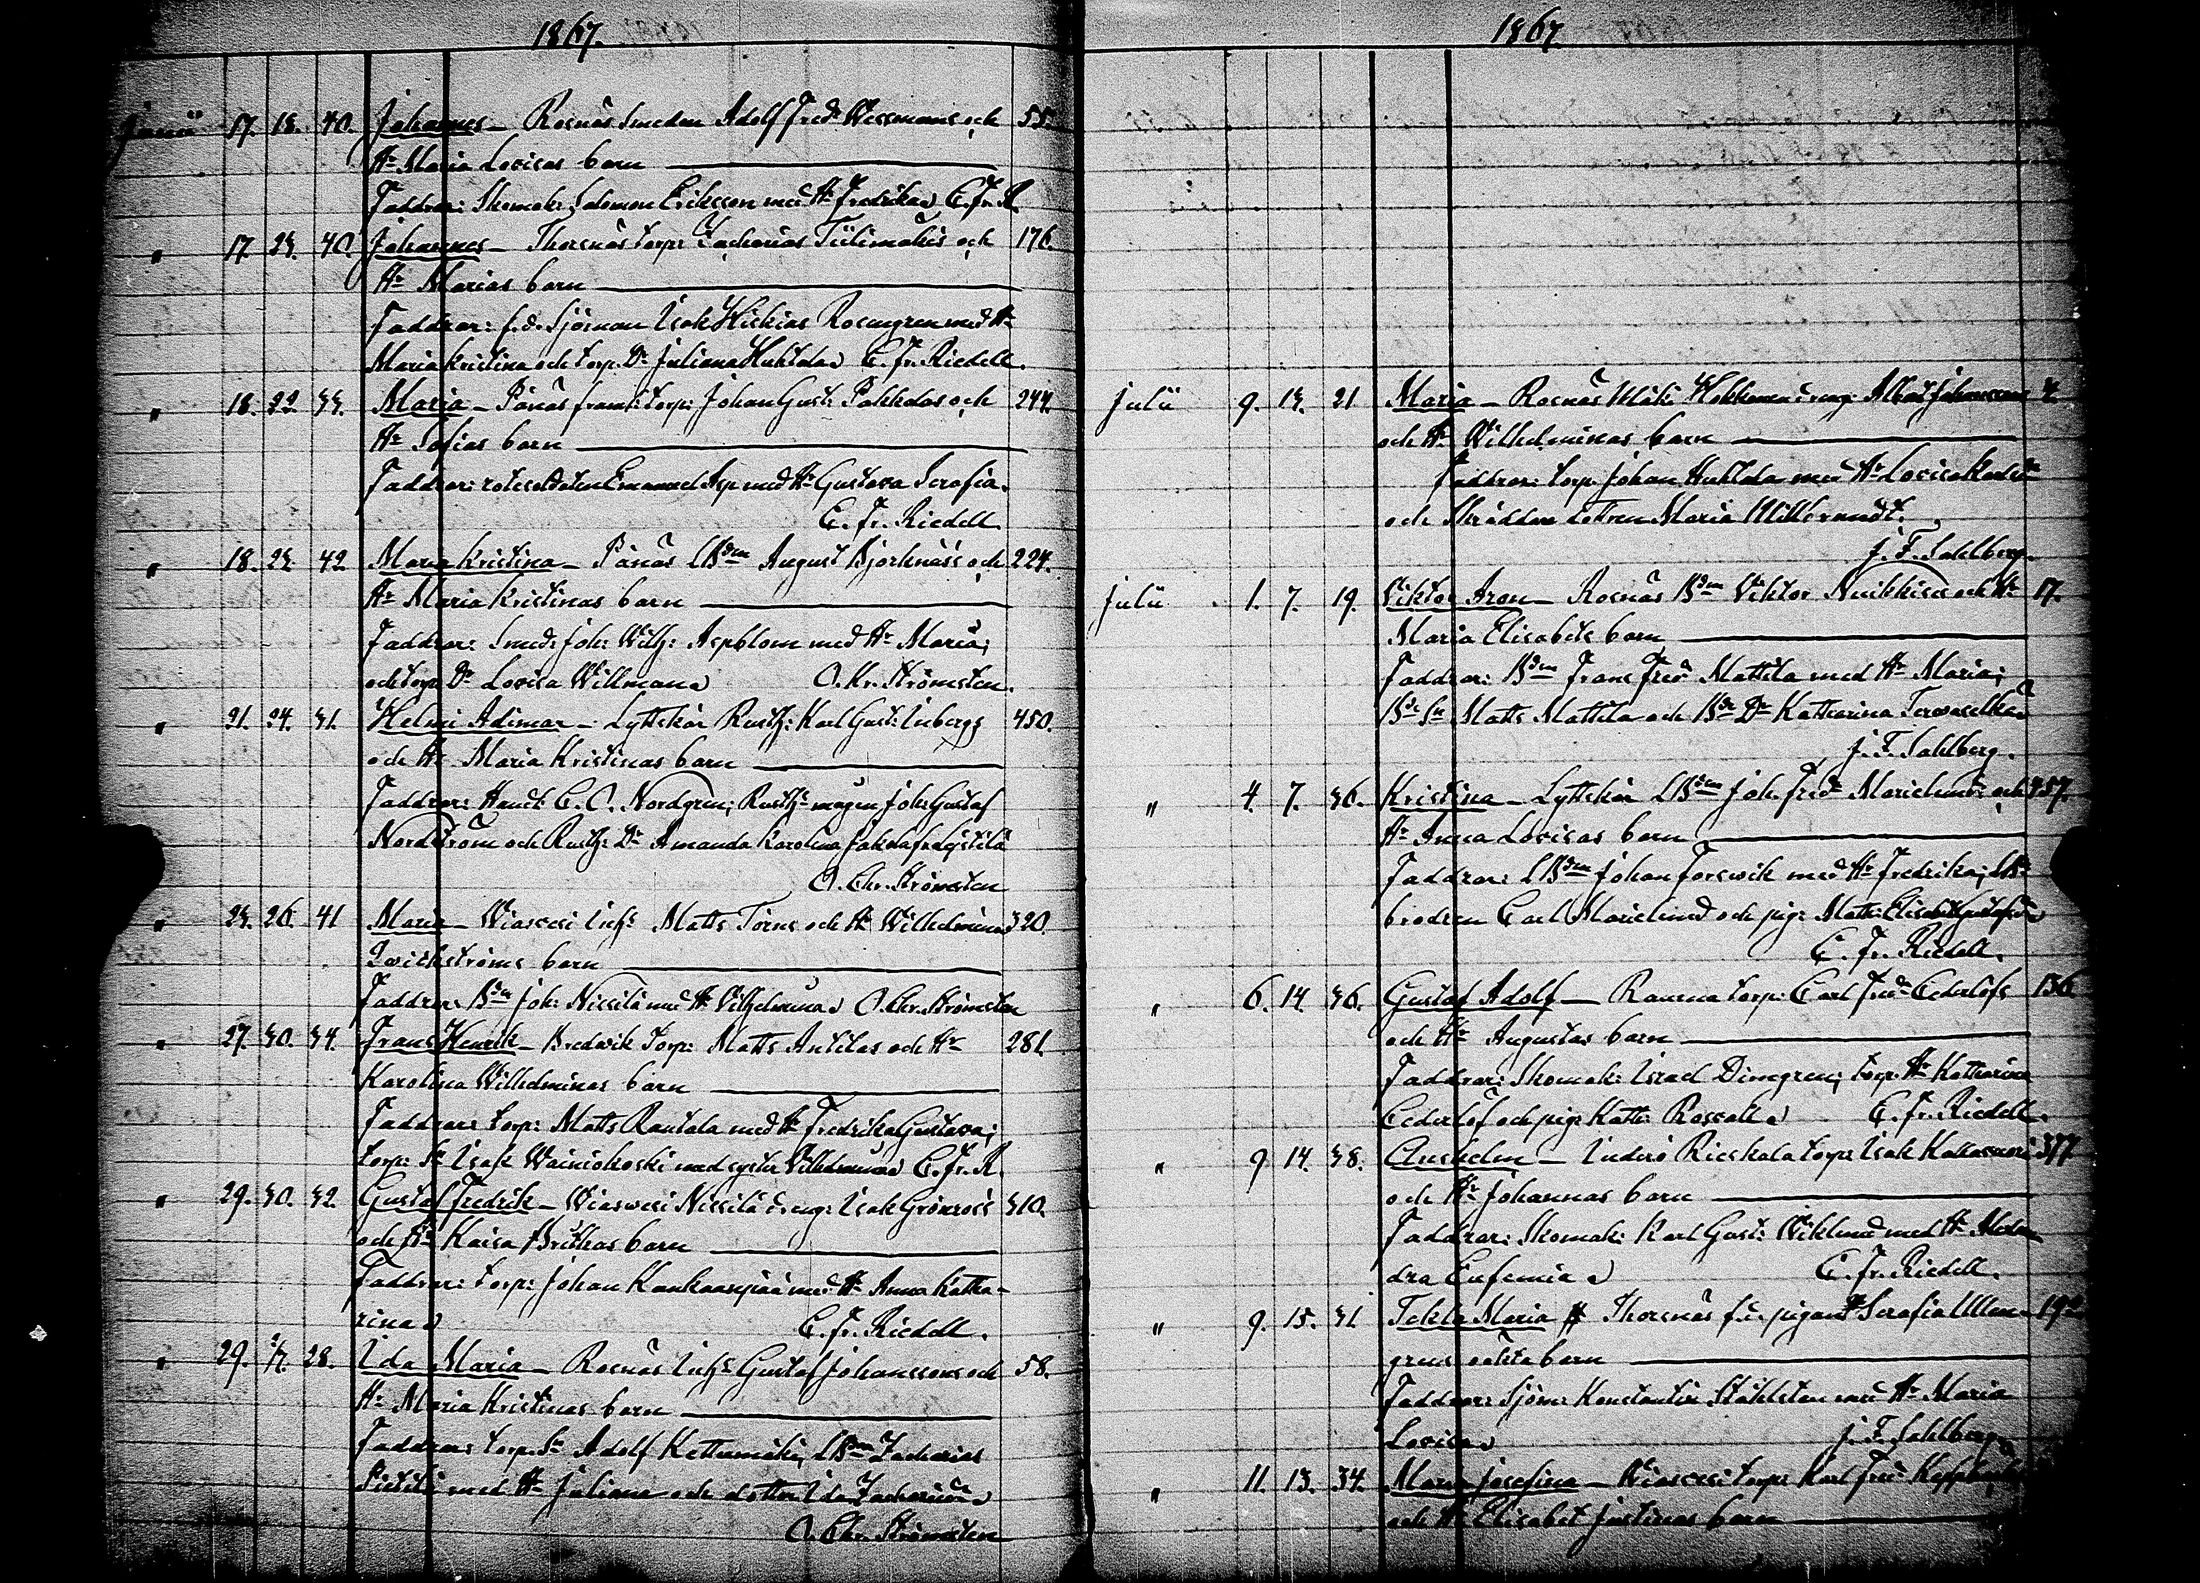 1867.
Junii 17. 18. 40. Johannes – Rosnäs Smeden Adolf Fred. Wessmans och 55.
Hr Maria Lovisas barn
Faddrar: Skomak: Salomon Eriksson med Hr Fredrika E. Fr. R.
" 17. 23. 40. Johannes – Thorsnäs torp: Zacharias Tiilimäkis och 176.
Hr Marias barn
Faddrar: f.d. Sjöman Isak Hiskias Rosengren med Hr
Maria Kristina och torp. Dr Juliana Huhtala E. Fr. Riedell.
" 18. 22. 33. Maria – Pånäs torp: Johan Gust: Pakkalas och 244.
Hr Sofias barn
Faddrar: rotesoldaten Emanuel Asp med Hr Gustava Serafia.
E. Fr. Riedell
" 18. 23. 42. Maria Kristina – Pånäs LBdm August Björknäs's och 224.
Hr Maria Kristinas barn
Faddrar: Smed: Joh: Wilh: Aspblom med Hr Maria;
och torp Dr Lovisa Willman O. Kr. Strömsten.
" 21. 24. 31. Helmi Adimar – Lyttskär Rusth: Karl Gust: Inbergs 450.
och Hr Maria Kristinas barn
Faddrar: Handl: C. O. Nordgren; Rusth: mågen Joh: Gustaf
Nordström och Rusth: Dr Amanda Karolina
O. Chr. Strömsten
" 23. 26. 41 Maria – Wiasvesi Inhs Matts Törns och Hr Wilhelmina 320.
Qwickströms barn
Faddrar: Bdn Joh: Nissilä med Hr Vilhelmina O. Chr. Strömsten
" 27. 30. 34. Frans Henrik – Bredvik Torp: Matts Anttilas och Hr 281.
Karolina Wilhelminas barn
Faddrar: torp: Matts Rautala med Hr Fredrika Gustava;
torp: Sn Isak Wainiokoski med syster Vilhelmina E. Fr. R.
" 29. 30. 32. Gustaf Fredrik – Wiasvesi Nissilä dreng: Isak Grönroos 310.
och Hr Kaisa Brithas barn
Faddrar: torp: Johan Kankaanpää med Hr Anna Katha-
rina E. Fr. Riedell.
" 29. 28. Ida Maria – Rosnäs Inhs Gustaf Johanssons och 58.
Hr Maria Kristinas barn
Faddrar: torp. Sn Adolf Kettumäki, LBdm Zacharias
med Hr Juliana och dotter Ida
O. Chr. Strömsten
1867
Julii 9. 13. 21 Maria – Rosnäs Uläki dreng: Albert Johanssons 4.
och Hr Wilhelminas barn
Faddrar: torp. Johan Huhtala med Hr Lovisa
och Skräddare dottren Maria
J. F. Sahlberg.
Julii 1. 7. 19 Viktor Aron – Rosnäs Bdm Viktor Nuikkisa och Hr 17.
Maria Elisabets barn
Faddrar: Bdm Frans Fred Mattila med Hr Maria;
Bde Sn Matts Mattila och Bde Dr Katharina
J. F. Sahlberg.
" 4. 7. 36. Kristina – Lyttskär LBdm Joh. Fred Marielunds och 457.
Hr Anna Lovisas barn
Faddrar: LBdm Johan Forswik med Hr Fredrika;
brodren Carl Marielund och pig: Math: Elisabet
E. Fr. Riedell.
" 6. 14. 36. Gustaf Adolf – Raumo torp: Carl Fred Cederlöfs 136
och Hr Augustas barn
Faddrar: Skomak: Israel Dimgren; torp. Hr Katharina
Cederlöf och pig: Kath: Rosvall E. Fr. Riedell.
" 9 14. 38. Anshelm – Inderö Rieskala torp: Isak 377
och Hr Johannas barn
Faddrar: Skomak: Karl Gust: Wiklund med Hr
dra Eufemia E. Fr. Riedell.
" 9. 15. 31 Tekla Maria – Thorsnäs f.d. pigans Serafia Ullen-
grens oäkta barn
Faddrar: Sjöm: Konstantin Ståhlsten med Hr Maria
Lovisa J. F. Sahlberg
" 11. 13. 34. Maria Josefina – Wiasvesi torp: Karl Fred
och Hr Elisabet Justinas barn